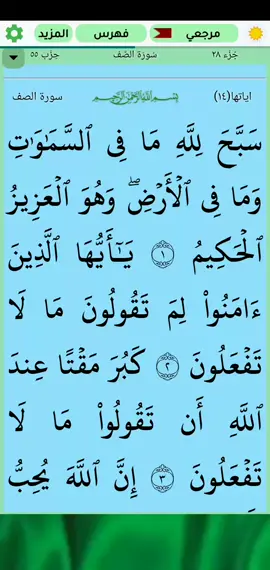 مرجعي فهرس المزيد
جُزْء ٢٨ سُورَة الصَّف حِزْب ٥٥
اياتها(١٤) بِسْمِ اللَّهِ الرَّحْمَٰنِ الرَّحِيمِ سورة الصف
سَبَّحَ لِلَّهِ مَا فِى ٱلسَّمَٰوَٰتِ
وَمَا فِى ٱلْأَرْضِۖ وَهُوَ ٱلْعَزِيزُ
ٱلْحَكِيمُ ١ يَٰٓأَيُّهَا ٱلَّذِينَ
ءَامَنُوا۟ لِمَ تَقُولُونَ مَا لَا
تَفْعَلُونَ ٢ كَبُرَ مَقْتًا عِندَ
ٱللَّهِ أَن تَقُولُوا۟ مَا لَا
تَفْعَلُونَ ٣ إِنَّ ٱللَّهَ يُحِبُّ